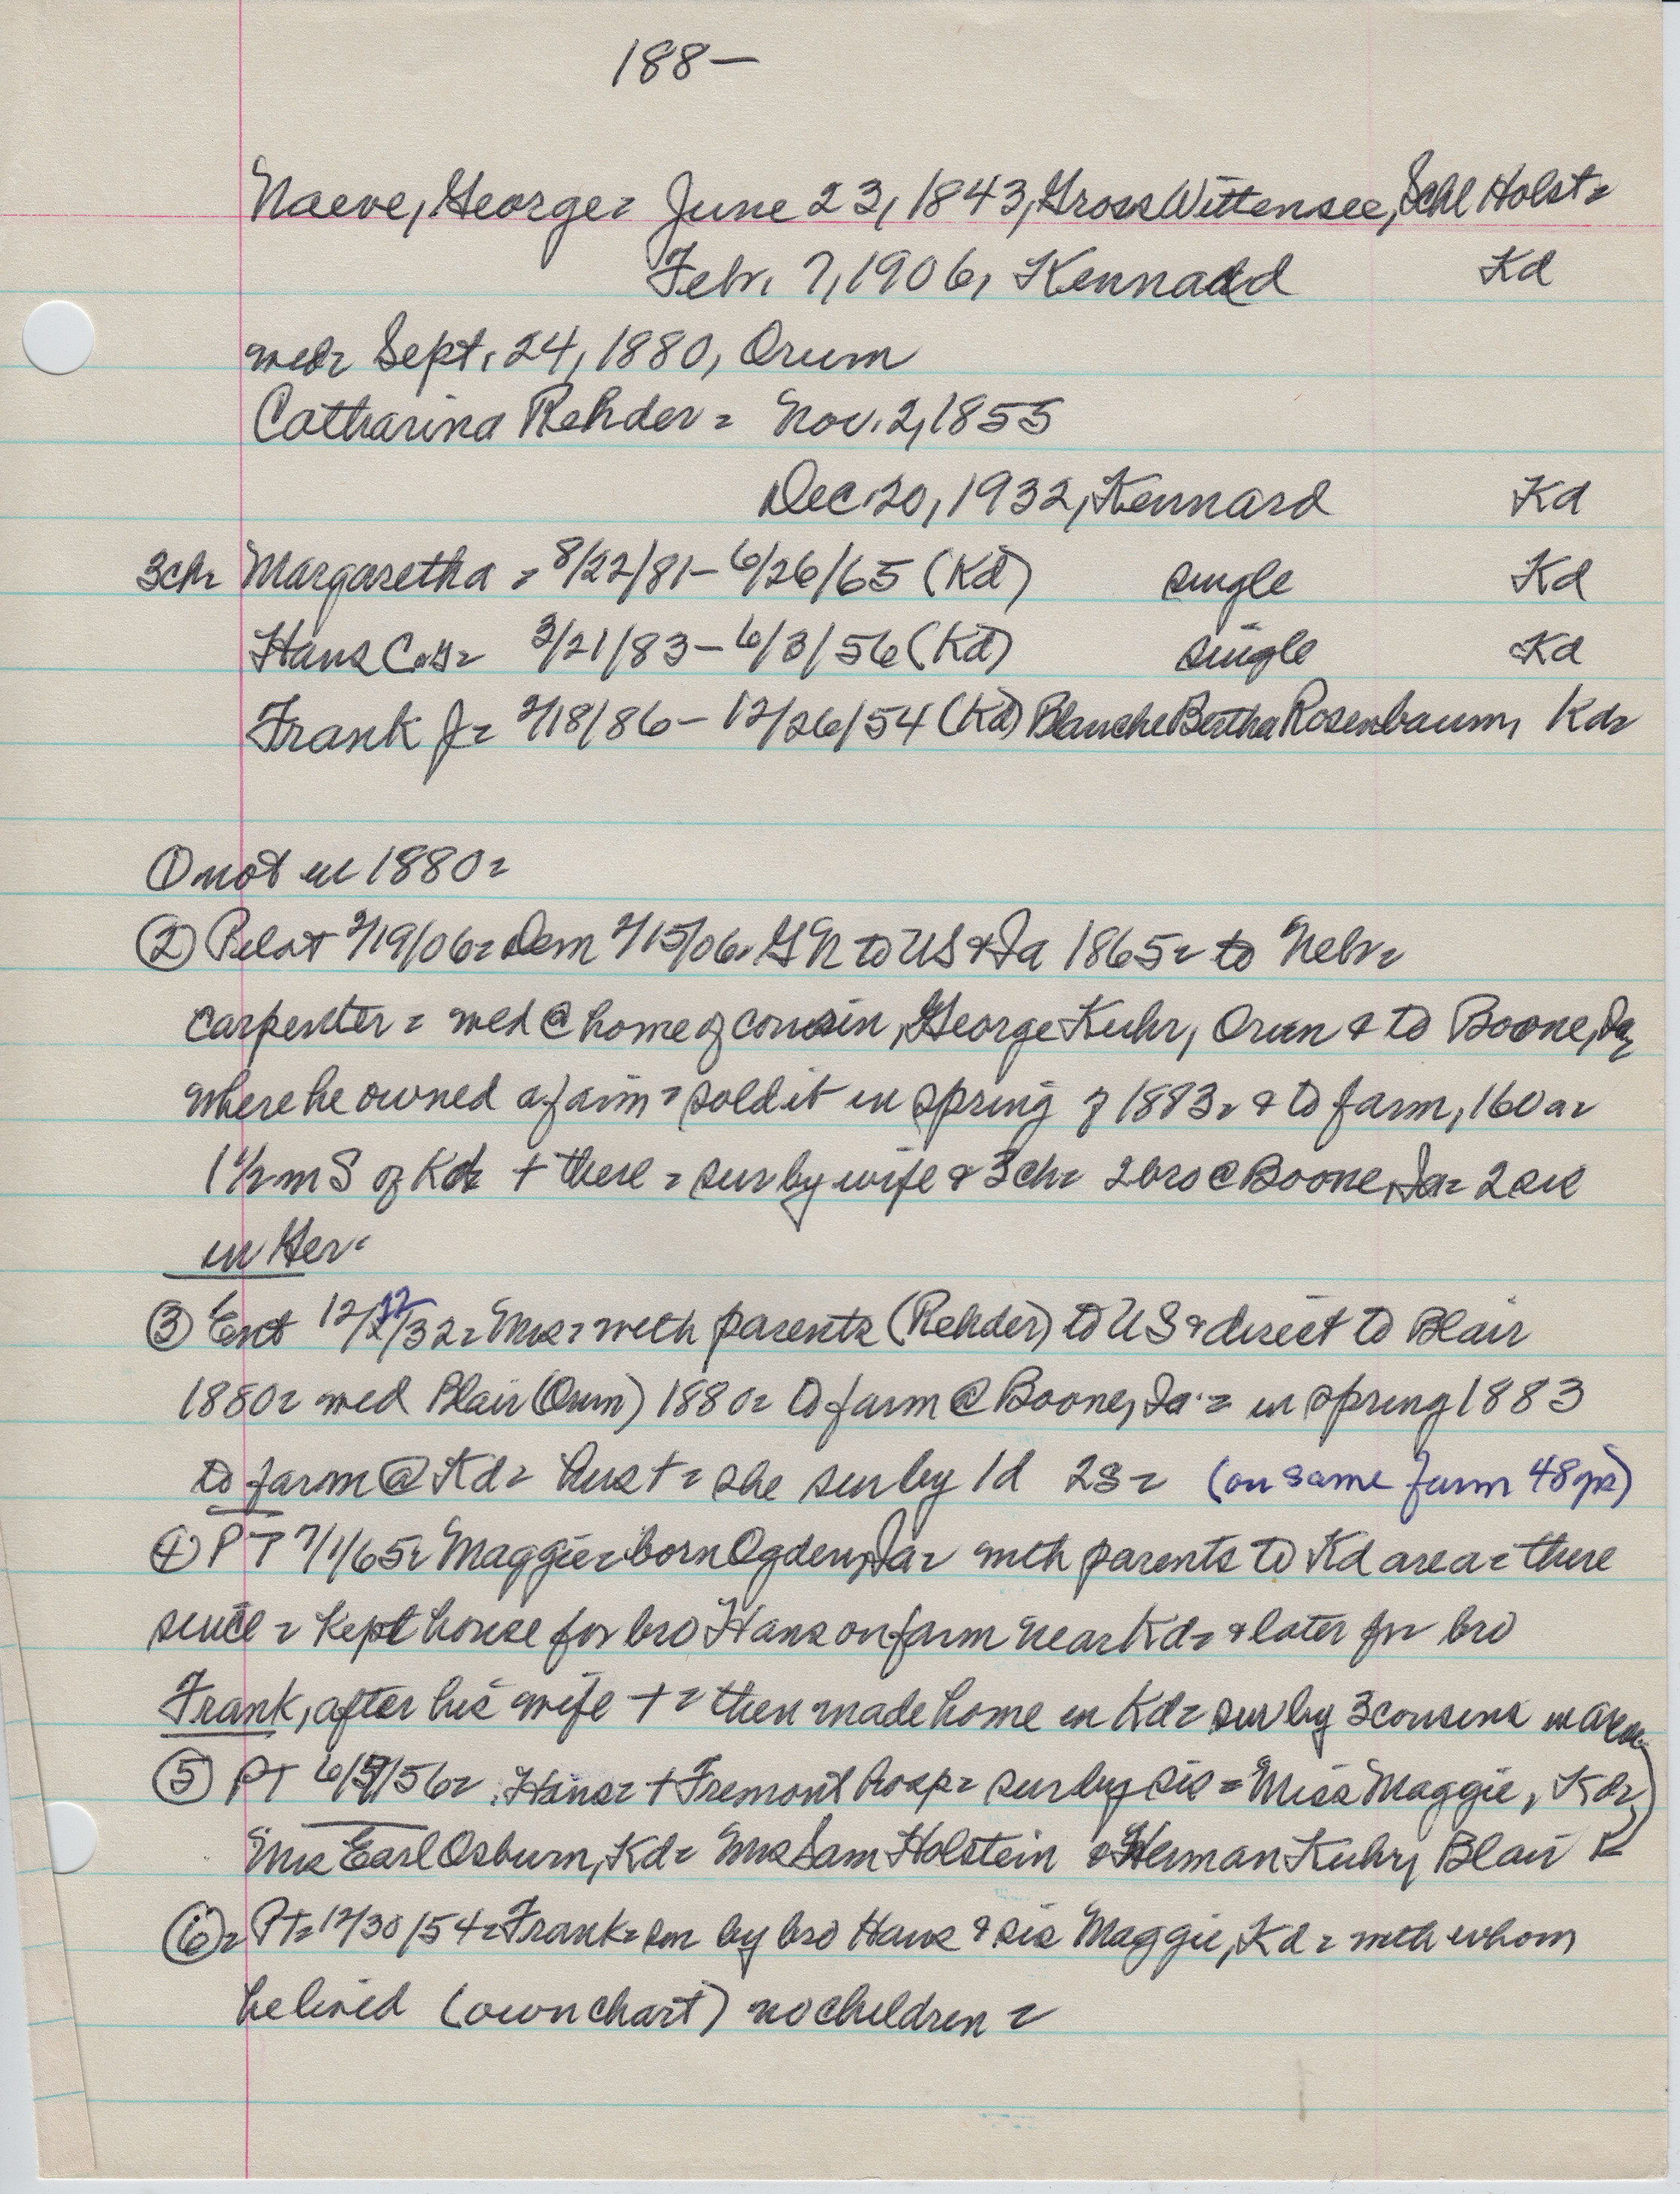 188-
Naeve, George = June 23, 1843, Gross Wittensee, Schl Holst =
Febr. 7, 1906, Kennard Kd
wed = Sept. 24, 1880, Orum
Catharina Rehder = Nov. 2, 1855
Dec. 20, 1932, Kennard Kd
3ch = Margaretha = 8/22/81 - 6/26/65 (Kd) single Kd
Hans C. = 3/21/83 - 6/3/56 (Kd) single Kd
Frank J = 2/18/86 - 12/26/54 (Kd) Blanche Bertha Rosenbaum, Kd =
① not in 1880 =
② Pilot 2/19/06 = Dem 2/15/06. GN to US & Ia 1865 = to Nebr =
carpenter = wed @ home of cousin, George Kuhr, Orum & to Boone, Ia
where he owned a farm = sold it in spring of 1883 = & to farm, 160 a =
1 1/2 m S of Kd & + there = sur by wife & 3ch = 2 bro @ Boone, Ia = 2 sis
in Ger.
③ Ent 12/22/32 = Mrs = with parents (Rehder) to US & direct to Blair
1880 = wed Blair (Orum) 1880 = to farm @ Boone, Ia. = in spring 1883
to farm @ Kd = hus + = she sur by 1d 2s = (on same farm 48 yrs)
④ PT 7/1/65 = Maggie = born Ogden, Ia = with parents to Kd area = there
since = kept house for bro Hans on farm near Kd = & later for bro
Frank, after his wife + = then made home in Kd = sur by 3 cousins in area
⑤ PT 6/7/56 = Hans = + Fremont hosp = sur by sis = Miss Maggie, Kd =
Mrs Earl Osburn, Kd = Mrs Sam Holstein & Herman Kuhr, Blair
⑥ = PT = 12/30/54 = Frank = sur by bro Hans & sis Maggie, Kd = with whom
he lived (own chart) no children =